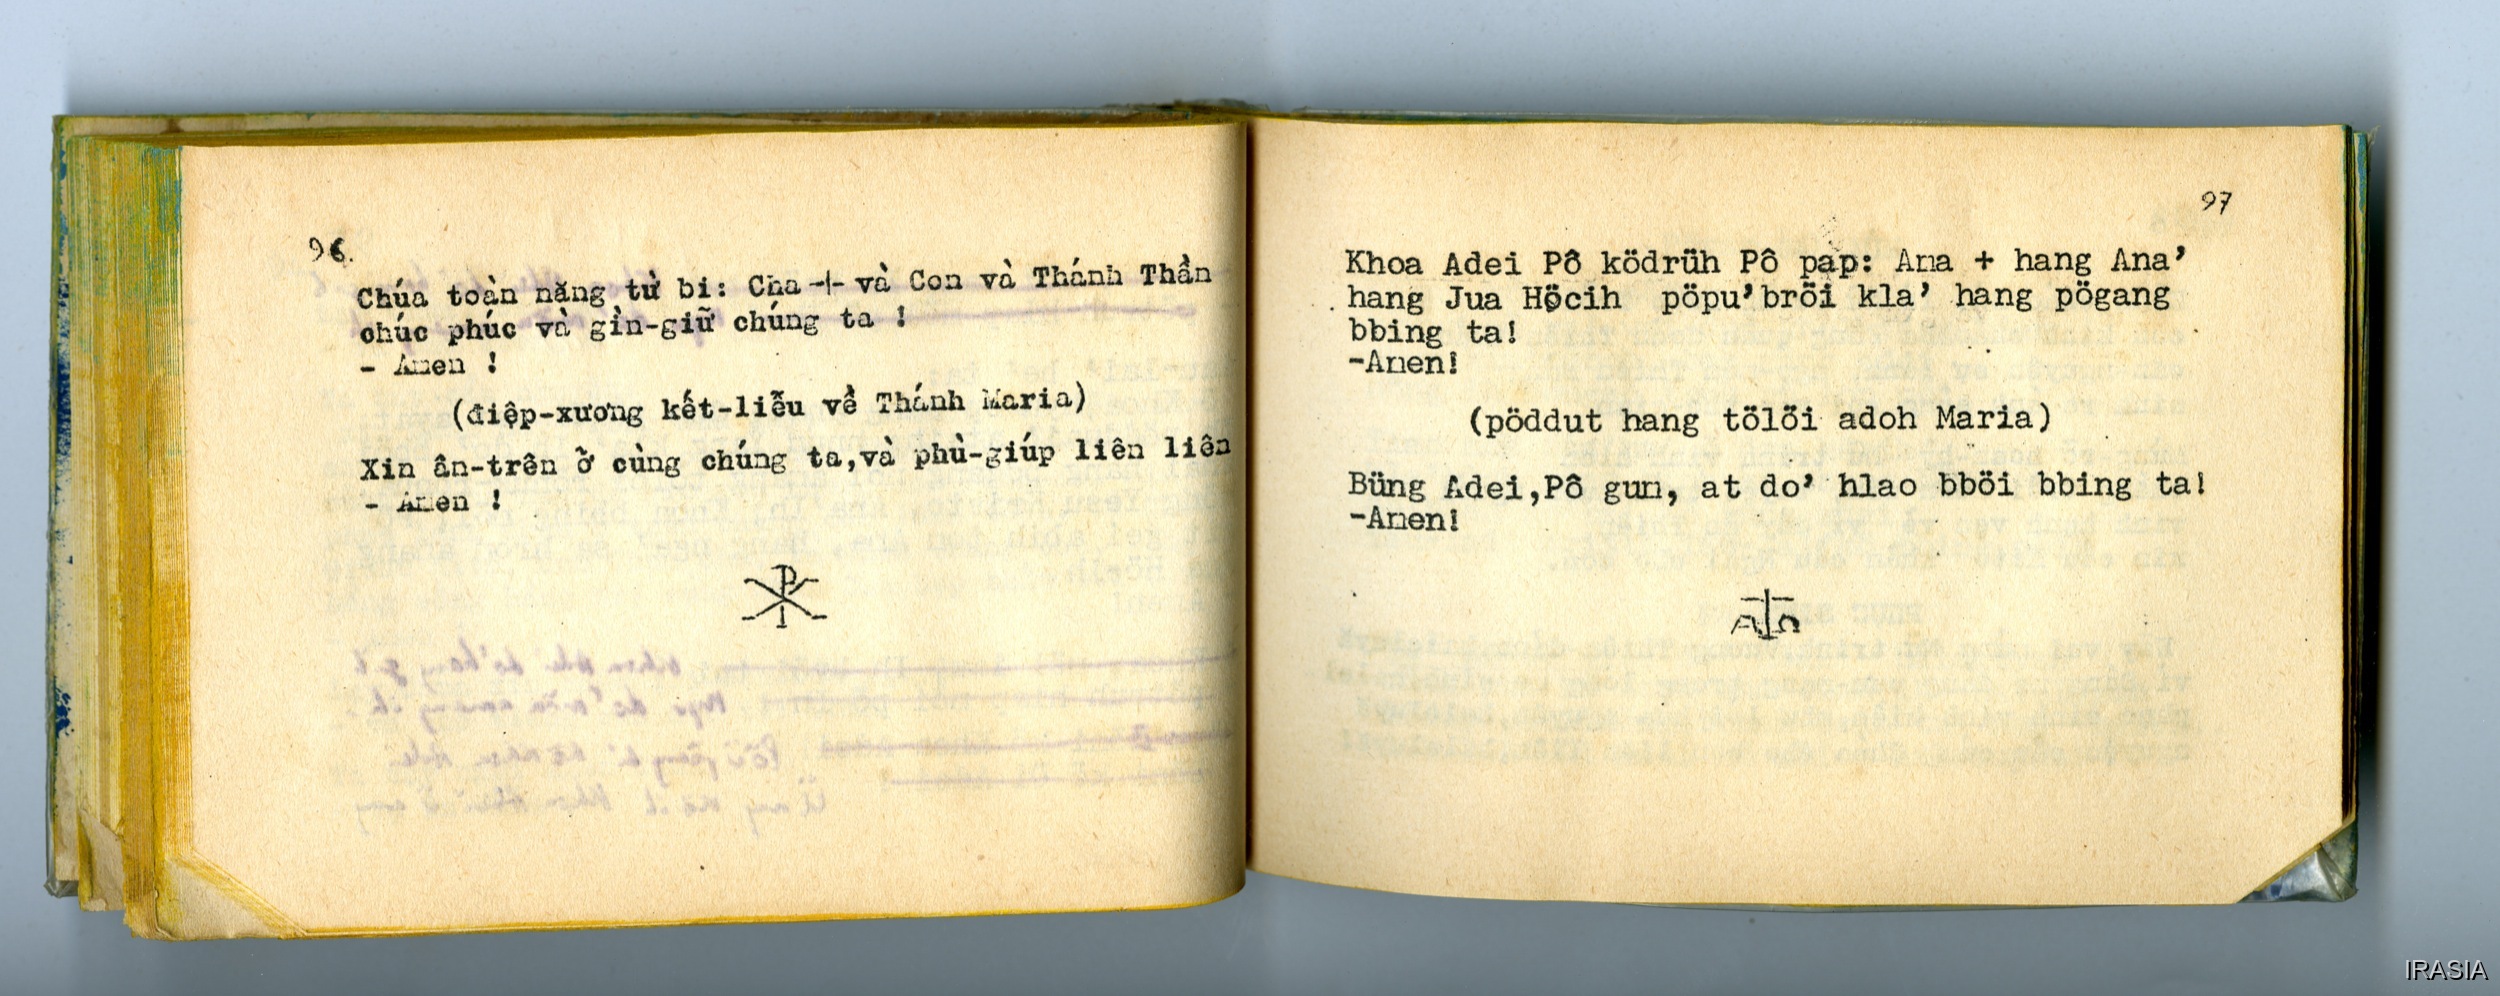 96.
Chúa toàn năng từ bi: Cha + và Con và Thánh Thần
chúc phúc và gìn-giữ chúng ta !
- Amen !
(điệp-xương kết-liễu về Thánh Maria)
Xin ân-trên ở cùng chúng ta,và phù-giúp liên liên
- Amen !
97
Khoa Adei Pô ködrüh Pô pap: Ama + hang Ana'
hang Jua Höcih pöpu'brŏi kla' hang pögang
bbing ta!
-Amen!
(pöddut hang tölŏi adoh Maria)
Büng Adei,Pô gum, at do' hlao bböi bbing ta!
-Amen!
A Ω
IRASIA